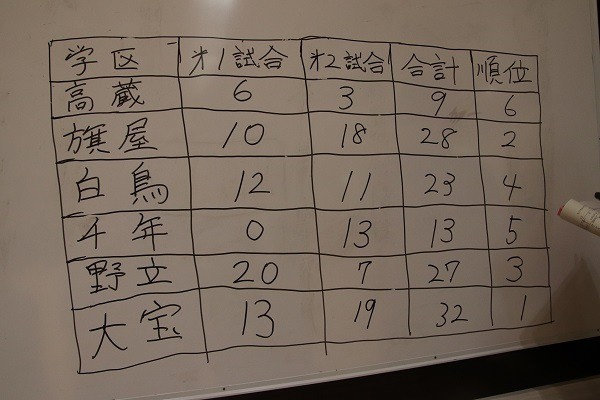 学区 㐧1試合 㐧2試合 合計 順位
高蔵 6 3 9 6
旗屋 10 18 28 2
白鳥 12 11 23 4
4年 0 13 13 5
野立 20 7 27 3
大宝 13 19 32 1